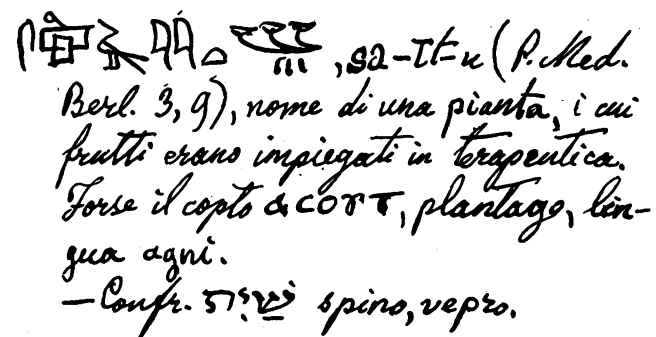 , sa-It-u (P. Med.
Berl. 3, 9), nome di una pianta, i cui
frutti erano impiegati in terapeutica.
Forse il copto ⲁⲥⲟⲩⲧ, plantago, lin-
gua agni.
— Confr. שַׁיִת spino, vepro.